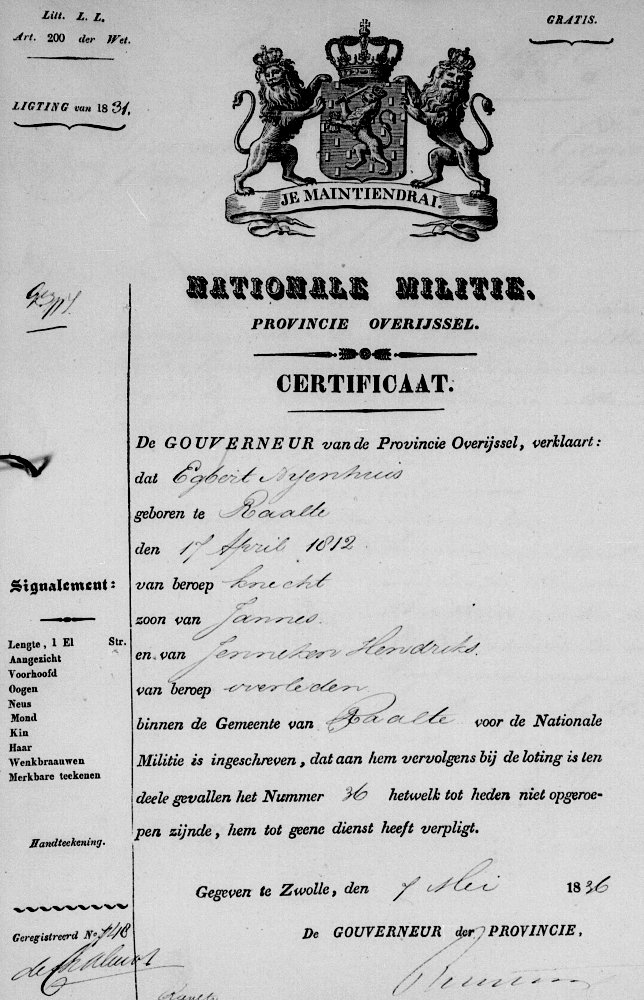 Litt. L. L.
Art. 200 der Wet.
GRATIS.
LIGTING van 1831.
JE MAINTIENDRAI.
NATIONALE MILITIE.
PROVINCIE OVERIJSSEL.
CERTIFICAAT.
De GOUVERNEUR van de Provincie Overijssel, verklaart:
dat Egbert Nyenhuis
geboren te Raalte
den 17 April 1812
van beroep knecht
zoon van Jannes
en van Jenneken Hendriks.
van beroep overleden
binnen de Gemeente van Raalte voor de Nationale
Militie is ingeschreven, dat aan hem vervolgens bij de loting is ten
deele gevallen het Nummer 36 hetwelk tot heden niet opgeroe-
pen zijnde, hem tot geene dienst heeft verpligt.
Signalement:
Lengte, 1 El Str.
Aangezicht
Voorhoofd
Oogen
Neus
Mond
Kin
Haar
Wenkbraauwen
Merkbare teekenen
Handteekening.
Gegeven te Zwolle, den 7 Mei 1836
De GOUVERNEUR der PROVINCIE,
Geregistreerd No. 748
Raalte